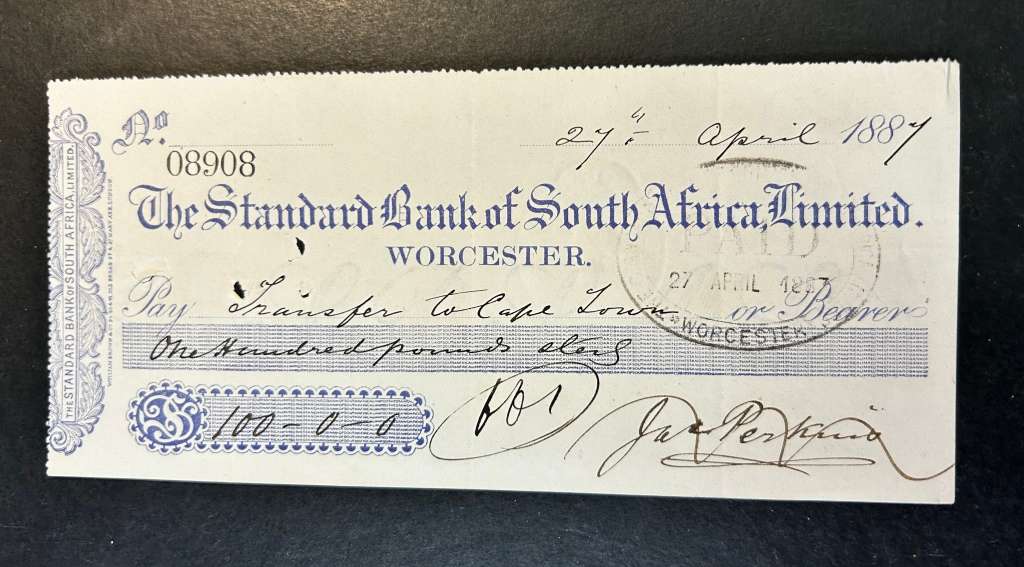 No.
08908
27th April 1887
The Standard Bank of South Africa, Limited.
WORCESTER.
PAID
27 APRIL 1887
WORCESTER
Pay Transfer to Cape Town or Bearer
One Hundred pounds sterg
100-0-0
Jas Perkins
THE STANDARD BANK OF SOUTH AFRICA, LIMITED.